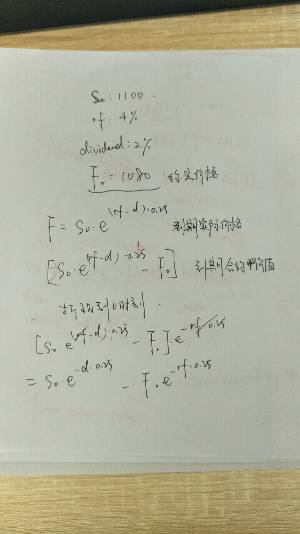 S₀: 1100.
rf: 4%
dividend: 2%
F₀ = 1080 约定价格
F = S₀·e^(rf-d)·0.25 到期实际价格
[S₀·e^(rf-d)·0.25 - F₀] 到期合约价值
折现到0时刻.
[S₀ e^(rf-d)·0.25 - F₀]·e^-rf·0.25
= S₀·e^-d·0.25 - F₀e^-rf·0.25